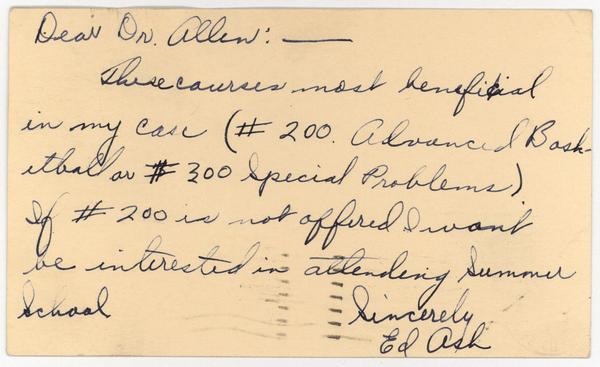 Dear Dr. Allen: —
These courses most benefitial
in my case (# 200. Advanced Bask-
etball or # 300 Special Problems)
If # 200 is not offered I won't
be interested in attending Summer
School Sincerely
Ed Ash